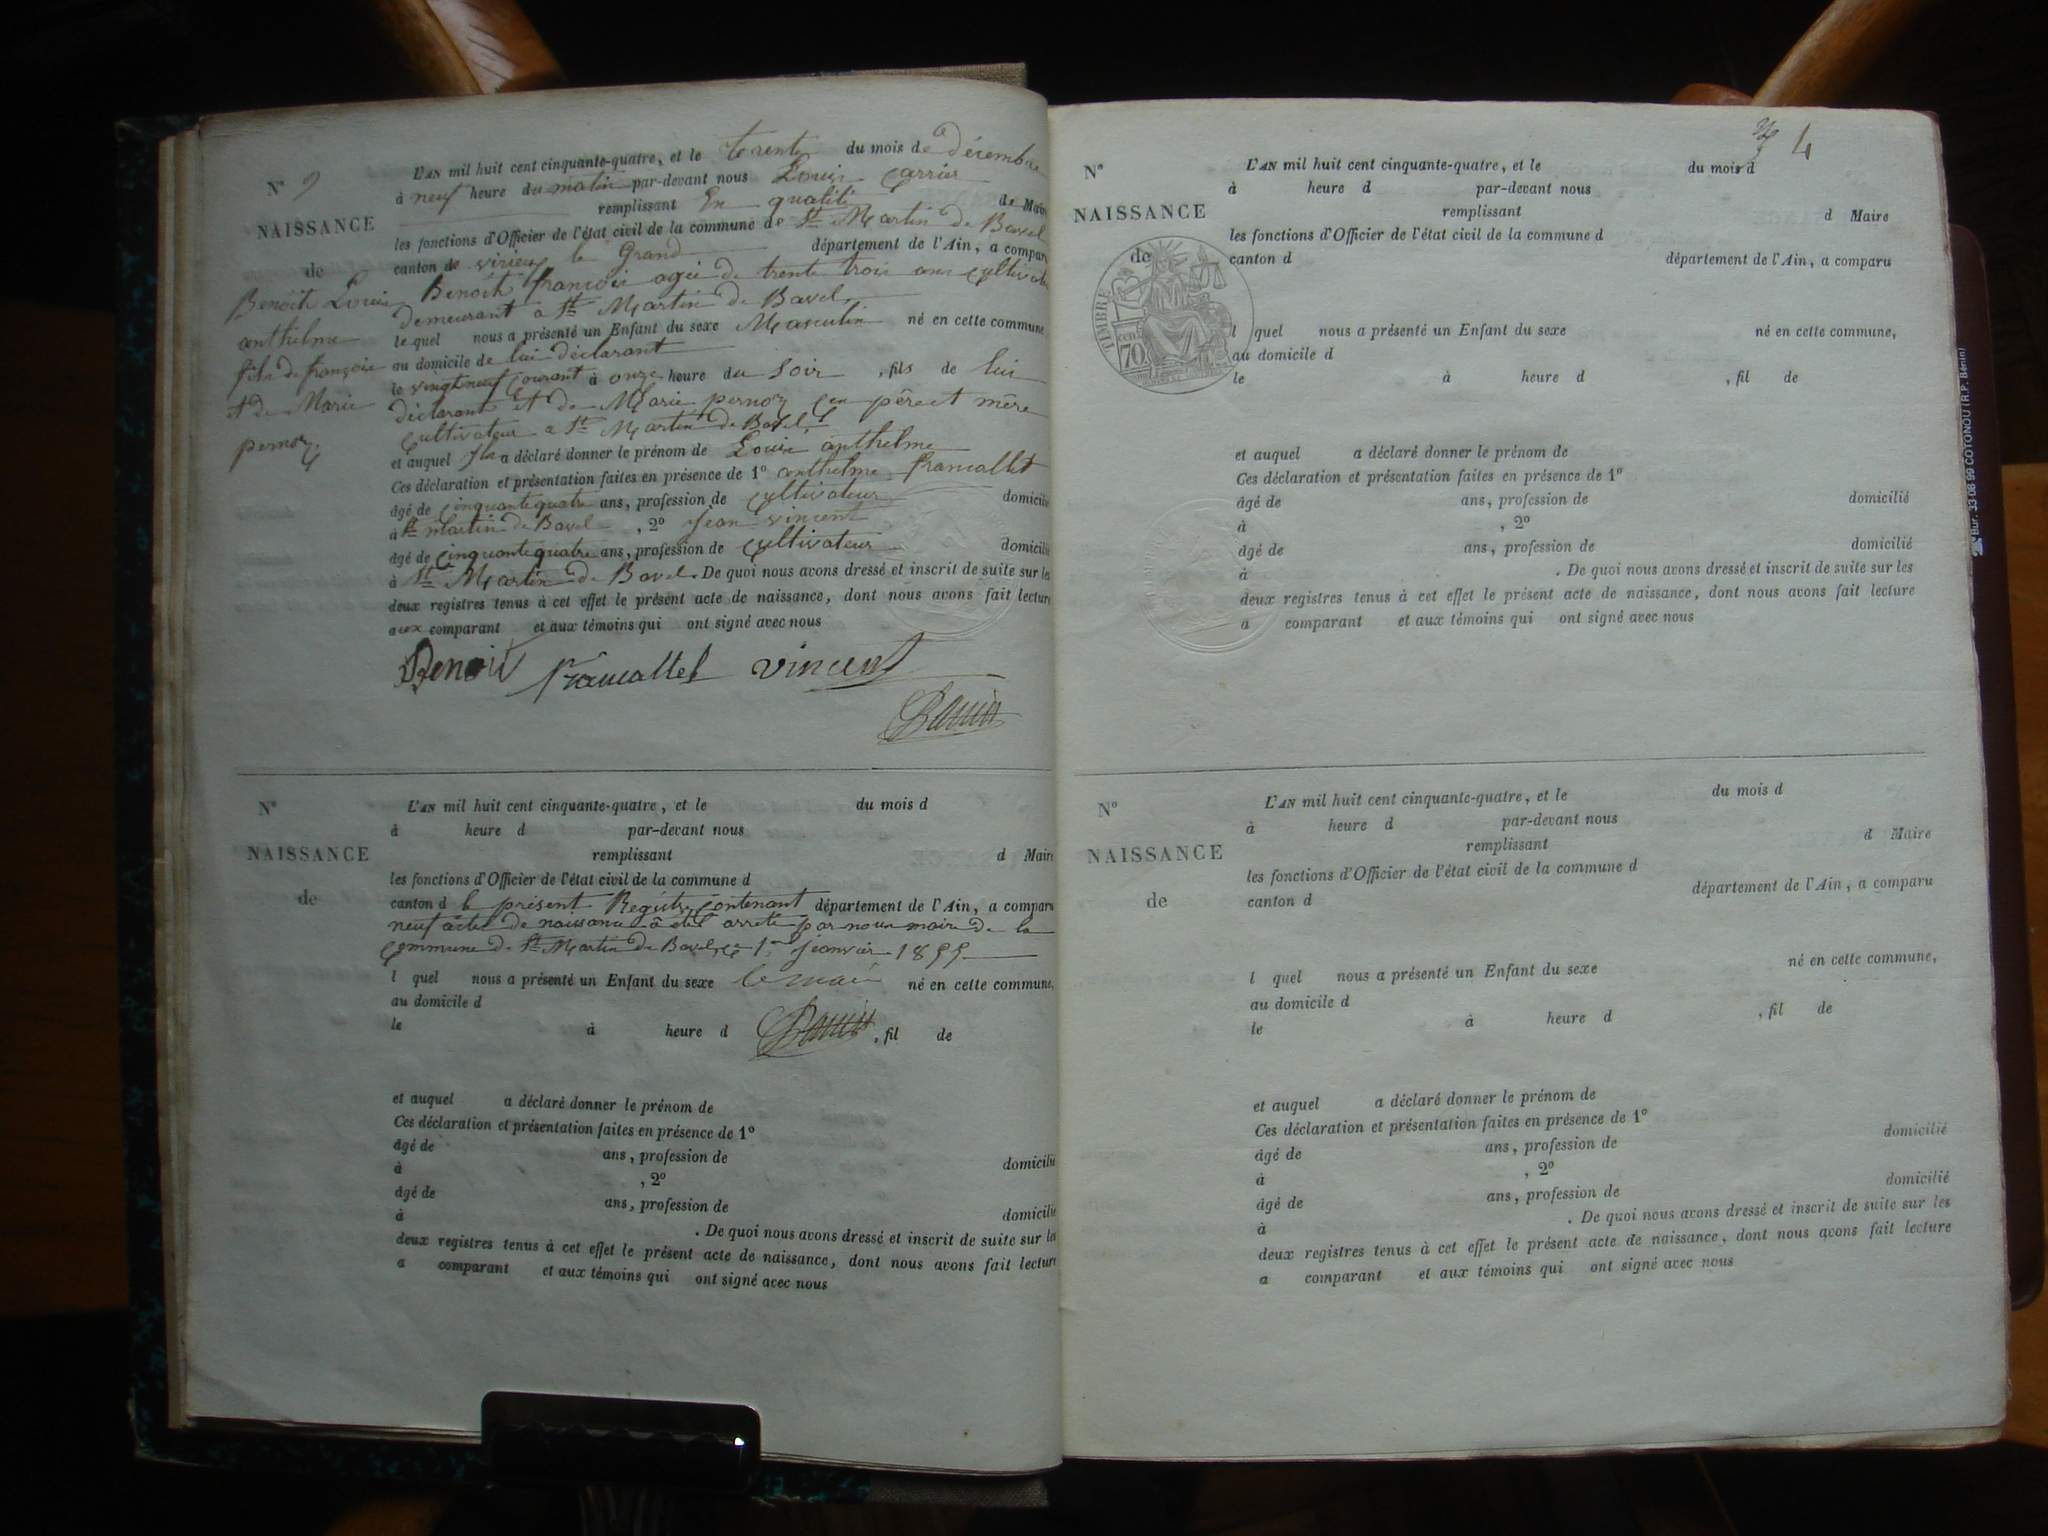 N° 9
NAISSANCE
de
Benoit Louis
anthelme
fils de françois
et de Marie
pernoz
L'AN mil huit cent cinquante-quatre, et le trente du mois de décembre
à neuf heure du matin par-devant nous Louis
remplissant En qualité de Maire
les fonctions d'Officier de l'état civil de la commune de St Martin de Bavel
canton de virieu le Grand département de l'Ain, a comparu
Benoit françois agée de trente trois ans cultivateur
demeurant a St Martin de Bavel
le quel nous a présenté un Enfant du sexe Masculin né en cette commune,
au domicile de lui déclarant
le vingt neuf courant à onze heure du soir , fils de lui
déclarant et de Marie pernoz père et mère
cultivateur a St Martin de Bavel
et auquel a déclaré donner le prénom de Louis anthelme
Ces déclaration et présentation faites en présence de 1° anthelme francallet
âgé de cinquante quatre ans, profession de cultivateur domicilié
à St martin de Bavel , 2° jean vincent
âgé de cinquante quatre ans, profession de cultivateur domicilié
à St Martin de Bavel. De quoi nous avons dressé et inscrit de suite sur les
deux registres tenus à cet effet le présent acte de naissance, dont nous avons fait lecture
aux comparant et aux témoins qui ont signé avec nous
Benoit francallet vincent
N°
NAISSANCE
de
L'AN mil huit cent cinquante-quatre, et le du mois d
à heure d par-devant nous
remplissant d Maire
les fonctions d'Officier de l'état civil de la commune d
canton d le présent Registre contenant département de l'Ain, a comparu
neuf actes de naissance a été arrêté par nous maire de la
commune de St Martin de Bavel, ce 1er janvier 1855
l quel nous a présenté un Enfant du sexe le maire né en cette commune,
au domicile d
le à heure d , fil de
et auquel a déclaré donner le prénom de
Ces déclaration et présentation faites en présence de 1°
âgé de ans, profession de domicilié
à , 2°
âgé de ans, profession de domicilié
à . De quoi nous avons dressé et inscrit de suite sur les
deux registres tenus à cet effet le présent acte de naissance, dont nous avons fait lecture
a comparant et aux témoins qui ont signé avec nous
4
N°
NAISSANCE
de
TIMBRE
70
L'AN mil huit cent cinquante-quatre, et le du mois d
à heure d par-devant nous
remplissant d Maire
les fonctions d'Officier de l'état civil de la commune d
canton d département de l'Ain, a comparu
l quel nous a présenté un Enfant du sexe né en cette commune,
au domicile d
le à heure d , fil de
et auquel a déclaré donner le prénom de
Ces déclaration et présentation faites en présence de 1°
âgé de ans, profession de domicilié
à , 2°
âgé de ans, profession de domicilié
à . De quoi nous avons dressé et inscrit de suite sur les
deux registres tenus à cet effet le présent acte de naissance, dont nous avons fait lecture
a comparant et aux témoins qui ont signé avec nous
N°
NAISSANCE
de
L'AN mil huit cent cinquante-quatre, et le du mois d
à heure d par-devant nous
remplissant d Maire
les fonctions d'Officier de l'état civil de la commune d
canton d département de l'Ain, a comparu
l quel nous a présenté un Enfant du sexe né en cette commune,
au domicile d
le à heure d , fil de
et auquel a déclaré donner le prénom de
Ces déclaration et présentation faites en présence de 1°
âgé de ans, profession de domicilié
à , 2°
âgé de ans, profession de domicilié
à . De quoi nous avons dressé et inscrit de suite sur les
deux registres tenus à cet effet le présent acte de naissance, dont nous avons fait lecture
a comparant et aux témoins qui ont signé avec nous
Bur. 33 08 99 COTONOU (R.P. Bénin)